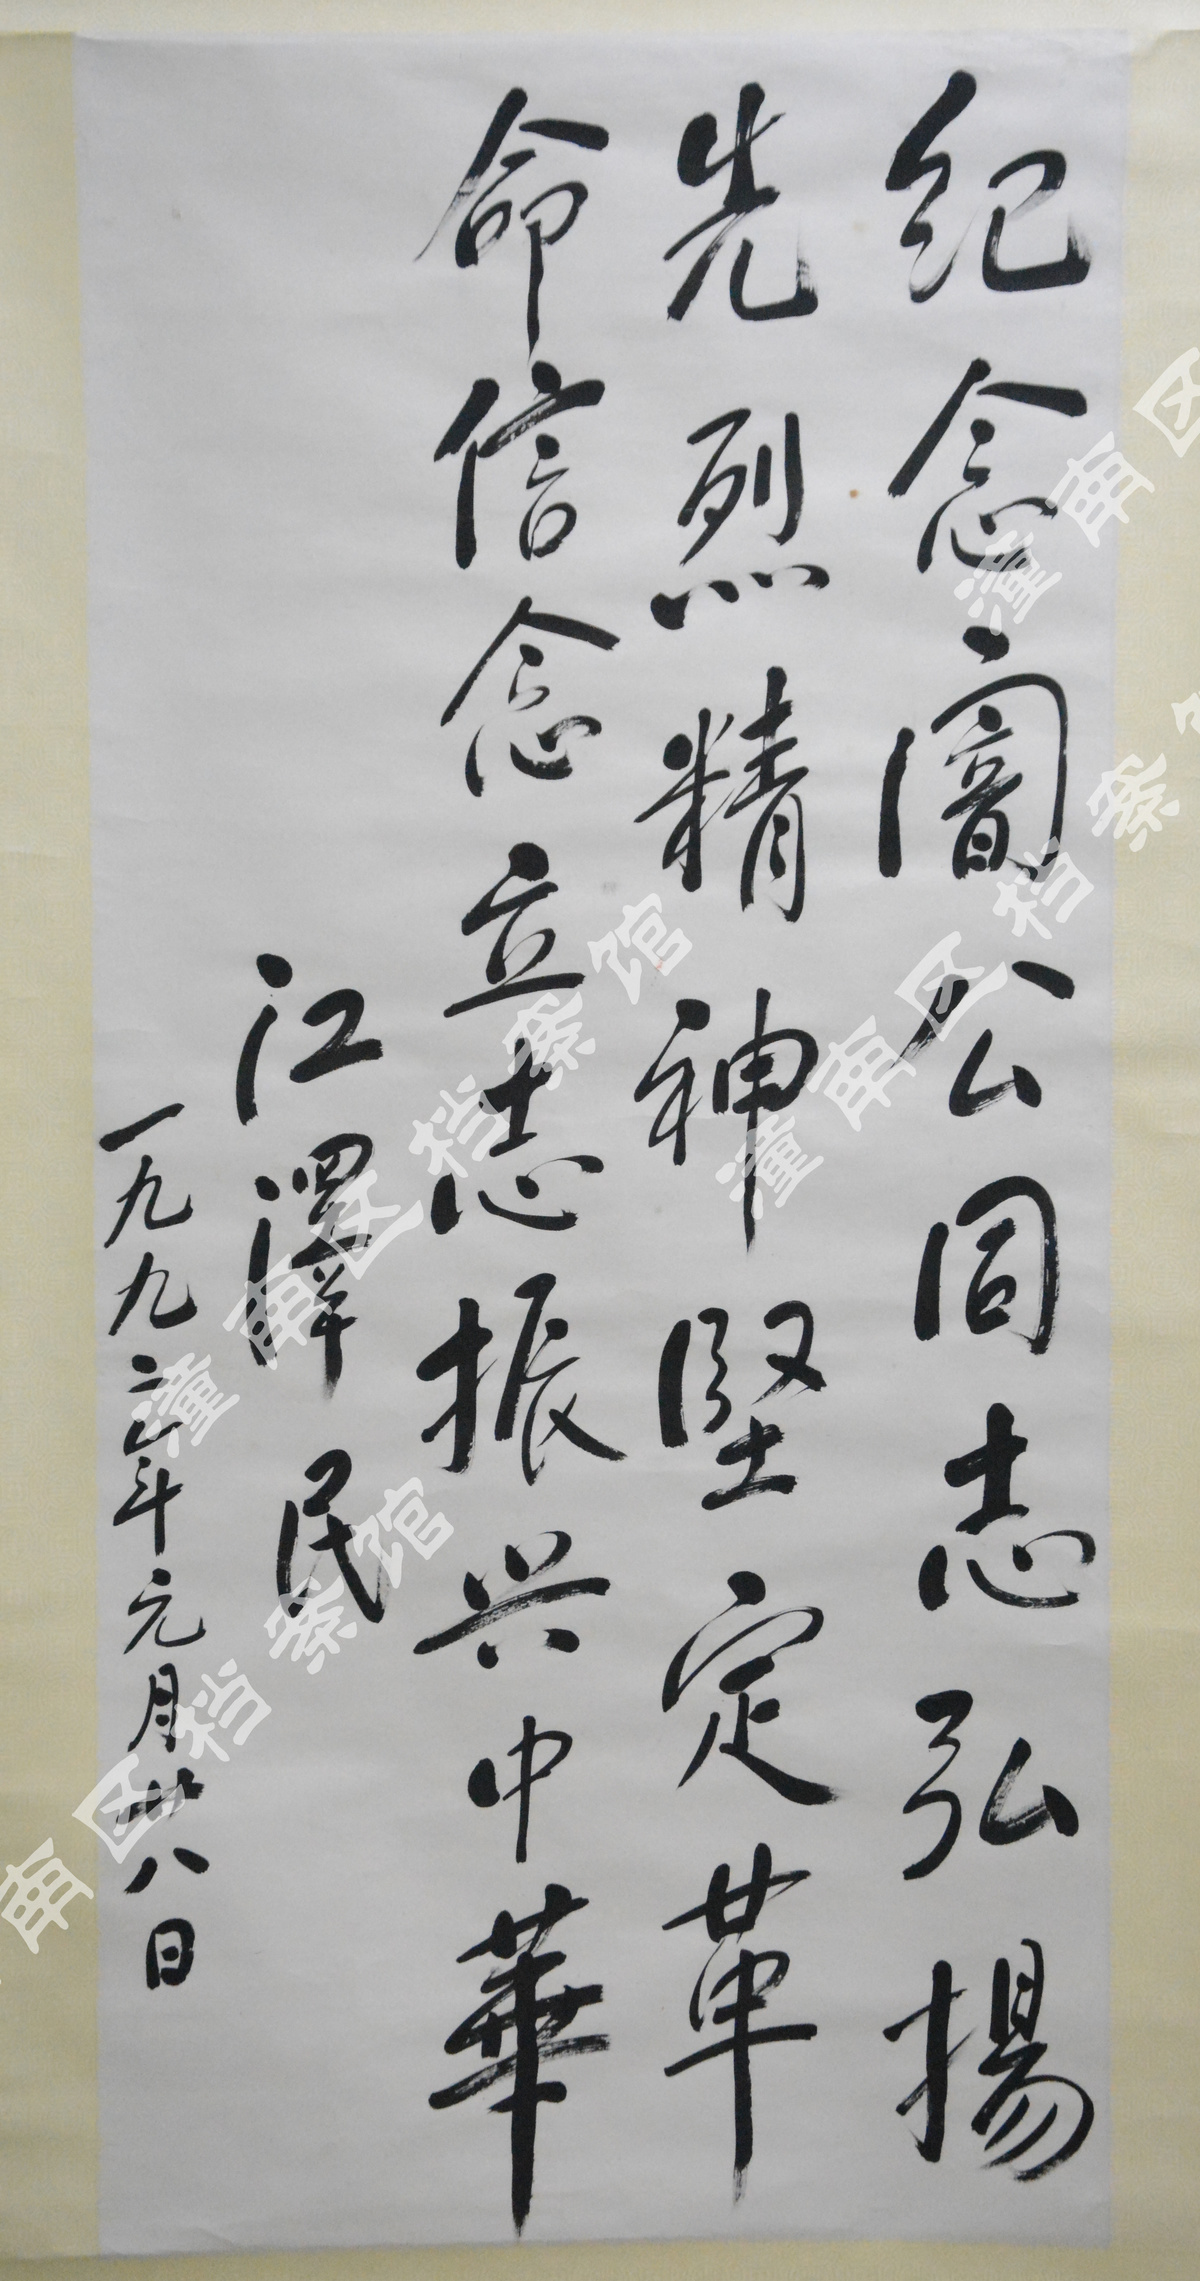 纪念闇公同志弘揚
先烈精神堅定革
命信念立志振兴中華
江澤民
一九九三年元月廿八日
潼南区档案馆
潼南区档案馆
潼南区档案馆